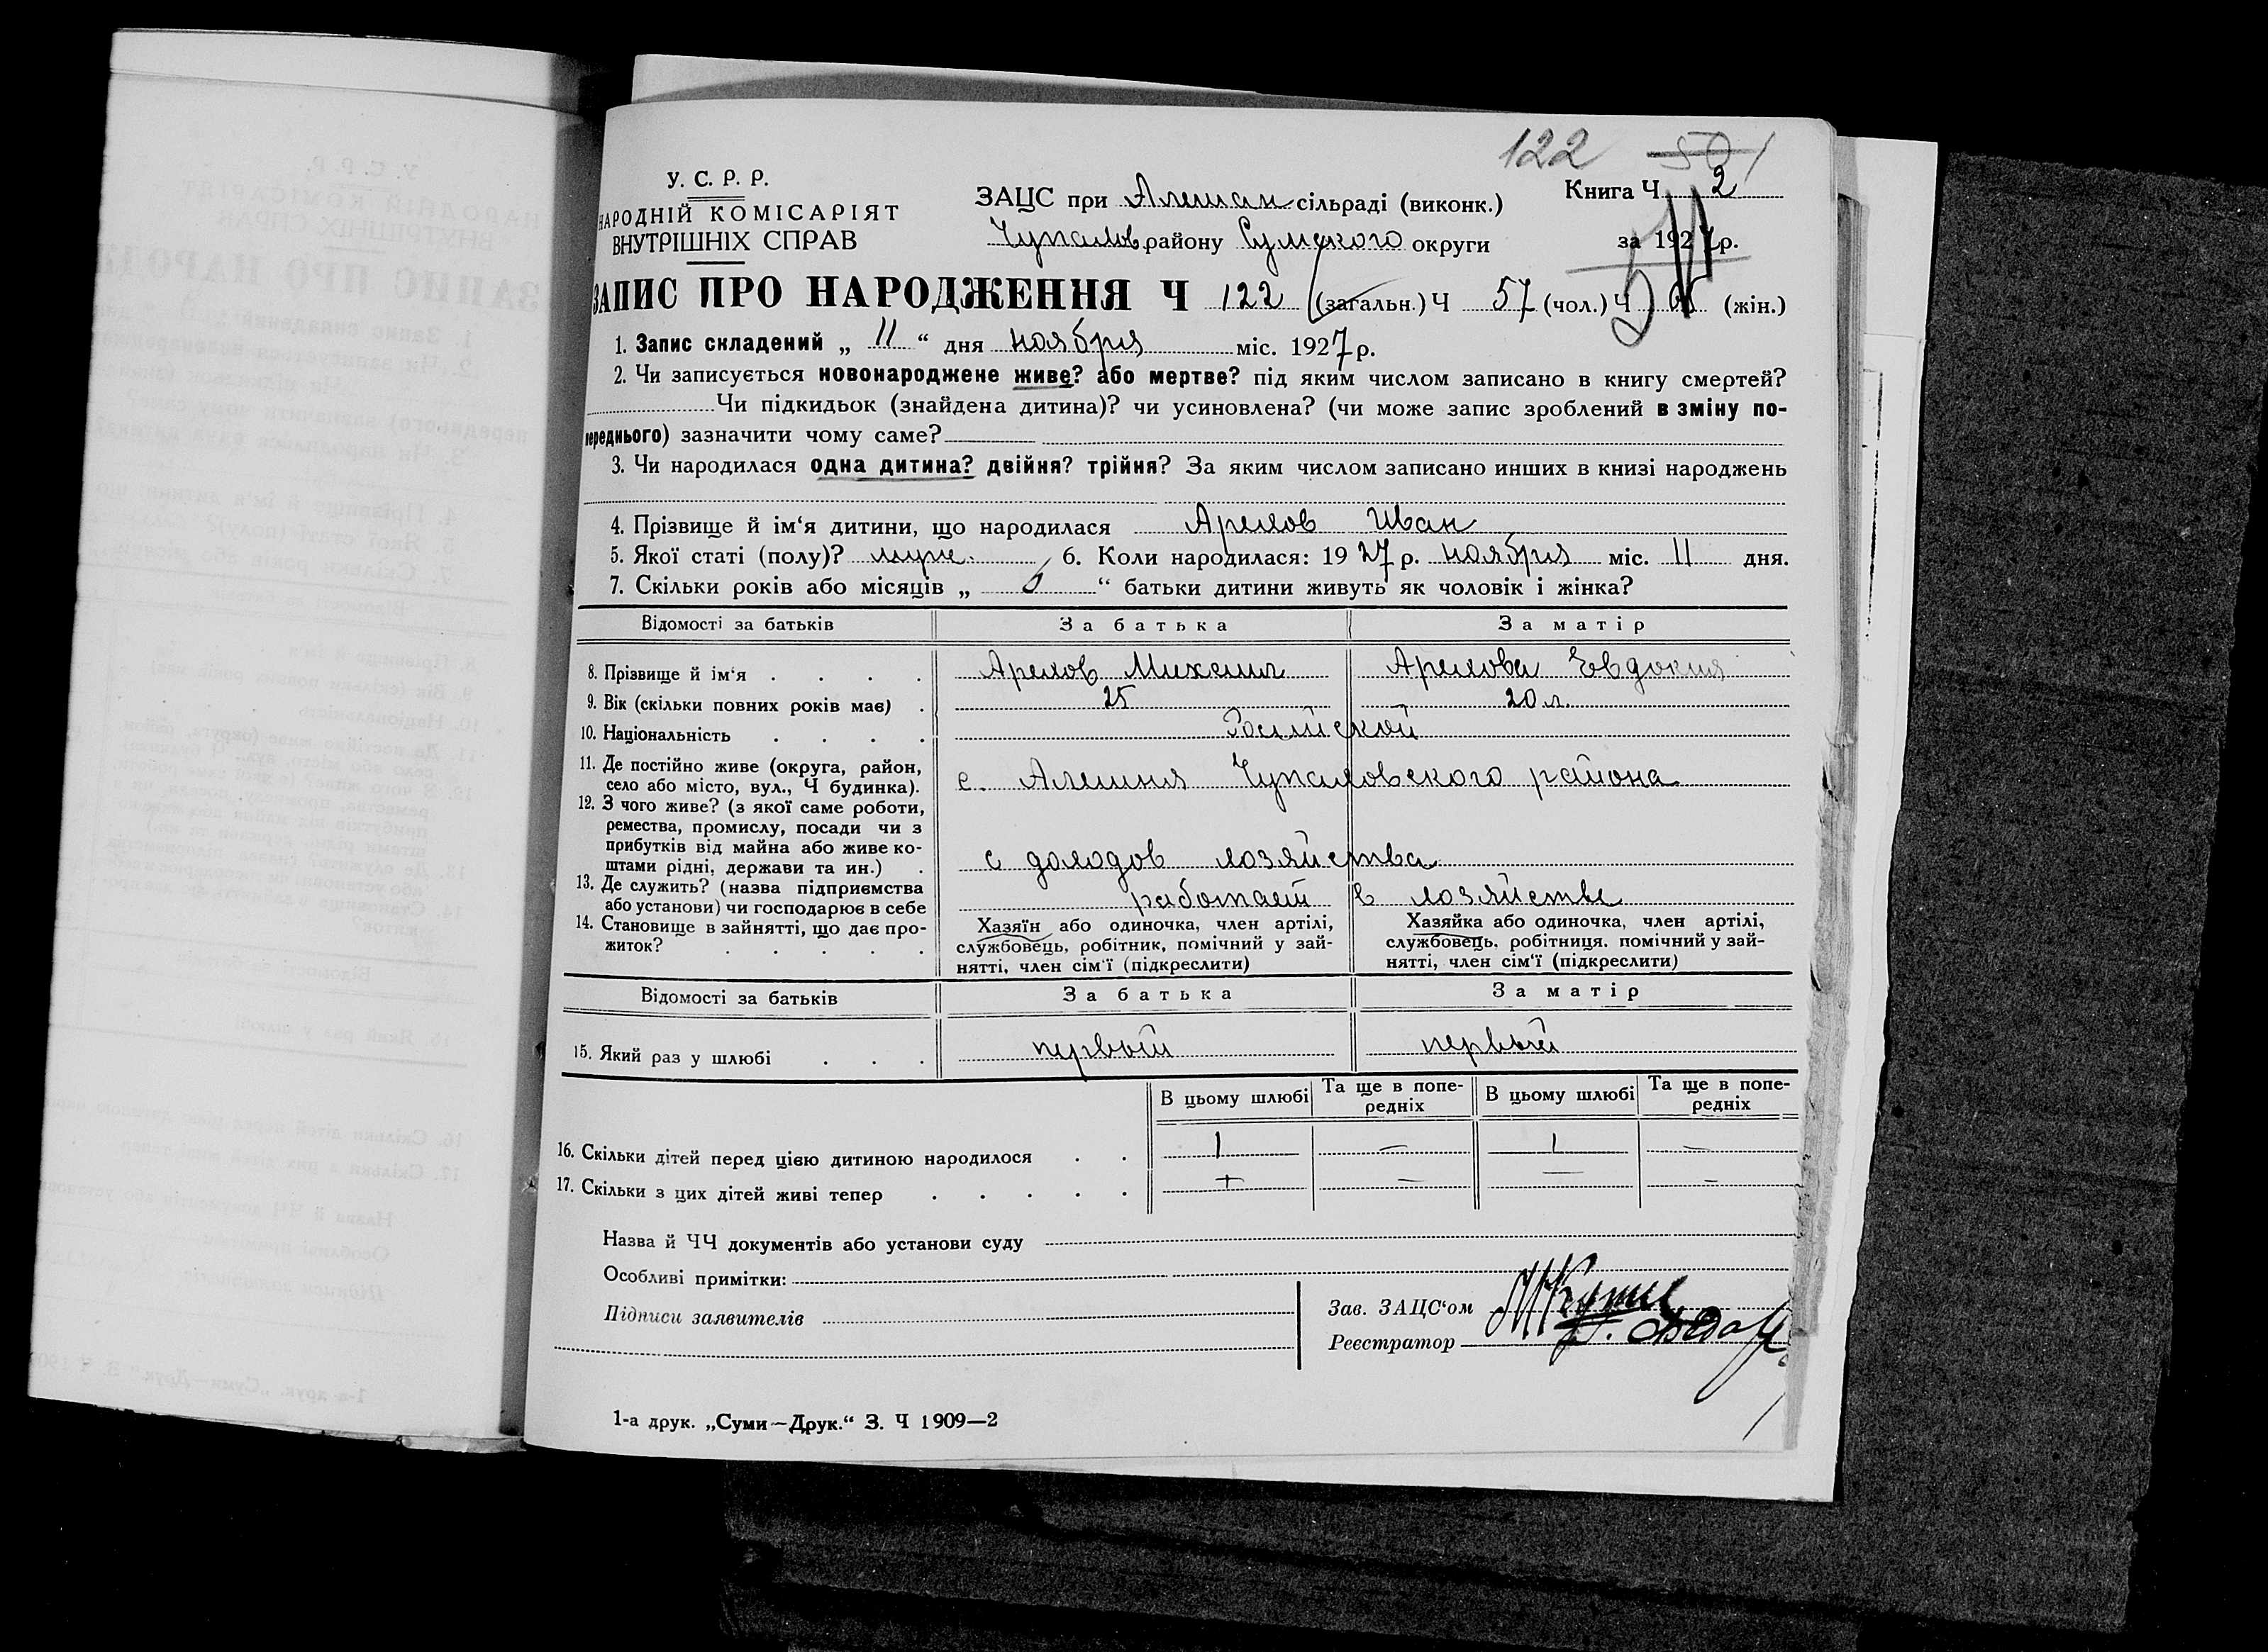 122
У. С. Р. Р.
НАРОДНІЙ КОМІСАРІЯТ
ВНУТРІШНІХ СПРАВ
ЗАЦС при Алешан сільраді (виконк.)
Чупахов. району Сумского округи
Книга Ч 2
за 1927 р.
ЗАПИС ПРО НАРОДЖЕННЯ Ч 122 (загальн.) Ч 57 (чол.) Ч (жін.)
1. Запис складений „ 11 “ дня ноября міс. 1927 р.
2. Чи записується новонароджене живе? або мертве? під яким числом записано в книгу смертей?
Чи підкидьок (знайдена дитина)? чи усиновлена? (чи може запис зроблений в зміну по-
переднього) зазначити чому саме?
3. Чи народилася одна дитина? двійня? трійня? За яким числом записано инших в книзі народжень
4. Прізвище й ім‘я дитини, що народилася Арехов Иван
5. Якої статі (полу)? муж. 6. Коли народилася: 1927 р. ноября міс. 11 дня.
7. Скільки років або місяців „ 6 “ батьки дитини живуть як чоловік і жінка?
Відомості за батьків За батька За матір
8. Прізвище й ім‘я . . . . Арехов Михаил Арехова Евдокия
9. Вік (скільки повних років має) . 25 20 л.
10. Національність . . . . Росийской
11. Де постійно живе (округа, район,
село або місто, вул., Ч будинка). с. Алешня Чупаховского района
12. З чого живе? (з якої саме роботи,
ремества, промислу, посади чи з
прибутків від майна або живе ко-
штами рідні, держави та ин.) . с доходов хозяйства
13. Де служить? (назва підприємства
або установи) чи господарює в себе работает в хозяйстве
14. Становище в зайнятті, що дає про-
житок? . . . . .
Хазяїн або одиночка, член артілі,
службовець, робітник, помічний у зай-
нятті, член сім‘ї (підкреслити)
Хазяйка або одиночка, член артілі,
службовець, робітниця, помічний у зай-
нятті, член сім‘ї (підкреслити)
Відомості за батьків За батька За матір
15. Який раз у шлюбі . . . первый первый
В цьому шлюбі Та ще в попе-
редніх В цьому шлюбі Та ще в попе-
редніх
16. Скільки дітей перед цією дитиною народилося . . 1 — 1 —
17. Скільки з цих дітей живі тепер . . . . . + — — —
Назва й ЧЧ документів або установи суду
Особливі примітки:
Підписи заявителів
Зав. ЗАЦС‘ом
Реєстратор
1-а друк. „Суми—Друк.“ З. Ч 1909—2